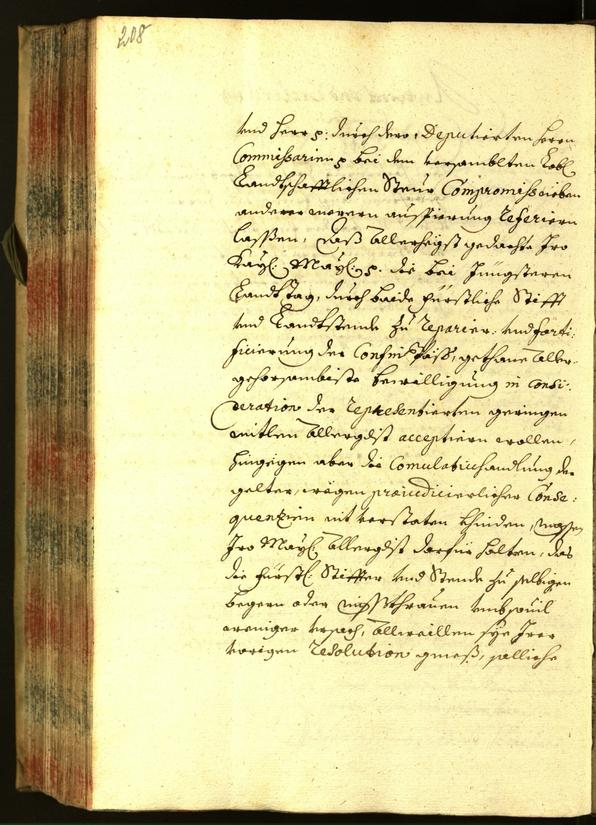 208
vnd herr p: durch dero, Deputierten herrn
Commissarien p bei dem versamblten Lobl:
Landtschafftlichen Steur Compromiss neben
anderer merern aussfierung referiern
lassen, dass allerhegst gedachte Iro
Kayl: Mayl: p. die bei Jüngsteren
Landtstag, durch baide fürstliche Stifft
vnd Landtstende zu reparier: vnd forti:
ficierung der Confin Päss, gethane aller:
gehorsambiste bewilligung in Consi:
deration der representierten geringen
mitlen allergdist acceptiern wollen,
hingegen aber die Comulativhandlung der
gelter, wegen præiudicierlicher Conse:
quenzien nit verstaten khinden, massen
Iro Mayl: allergdist darfür halten, das
die fürstl: Stiffter vnd Stende zu selbigen
begern oder missthrauen umbsouil
weniger vrsach, allweillen sye Irer
vorigen Resolution gmess, solliche